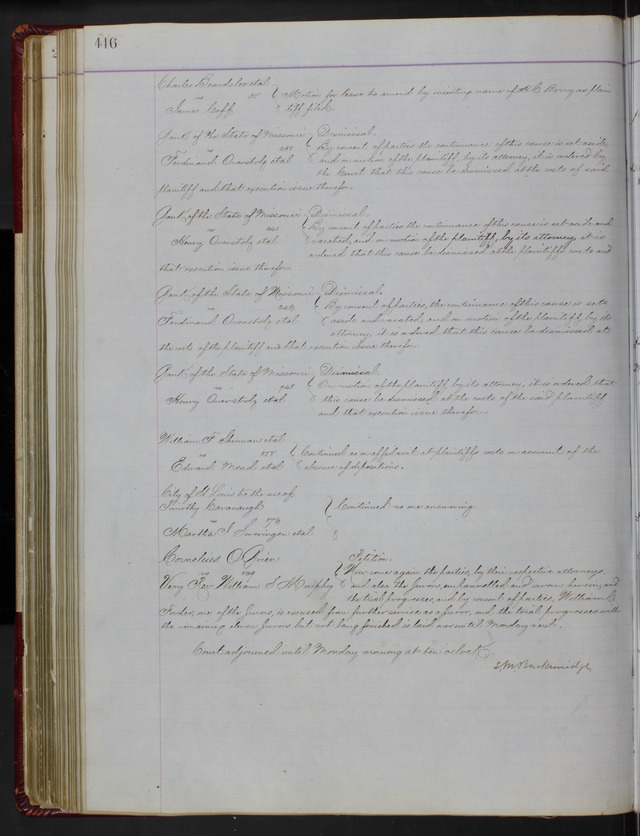 416
Charles Beardslee et al
vs Motion for leave to amend by inserting name of H. C. Berry as plain
James Cuff tiff filed.
Bank of the State of Missouri Dismissal.
vs By consent of parties the continuance of this cause is set aside,
Ferdinand Overstolz et al and on motion of the plaintiff, by its attorney, it is ordered by
the Court that this cause be dismissed at the costs of said
plaintiff and that execution issue therefor.
Bank of the State of Missouri Dismissal.
vs By consent of parties the continuance of this cause is set aside and
Henry Overstolz et al vacated, and on motion of the plaintiff, by its attorney, it is
ordered that this cause be dismissed at the plaintiff's costs and
that execution issue therefor.
Bank of the State of Missouri Dismissal.
vs By consent of parties, the continuance of this cause is set
Ferdinand Overstolz et al aside and vacated, and on motion of the plaintiff, by its
attorney, it is ordered that this cause be dismissed at
the costs of the plaintiff and that execution issue therefor.
Bank of the State of Missouri Dismissal.
vs On motion of the plaintiff by its attorney, it is ordered that
Henry Overstolz et al this cause be dismissed at the costs of the said plaintiff
and that execution issue therefor.
William T. Sherman et al
vs Continued on affidavit at plaintiffs costs on account of the
Edward Mead et al absence of depositions.
City of St Louis to the use of
Timothy Cavanaugh Continued no one answering.
vs
Martha I Swearingen et al
Cornelius O'Brien Petition.
vs Now come again the parties, by their respective attorneys,
Very Rev William S Murphy and also the Jurors, empannelled and sworn herein, and
the trial progresses, and by consent of parties, William
one of the Jurors, is excused from further service as a Juror, and the trial progresses with
the remaining eleven Jurors but not being finished is laid over until Monday next.
Court adjourned until Monday morning at ten oclock.
S. M. Breckinridge